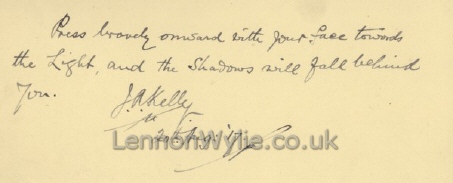 Press bravely onward with your face towards
the Light, and the Shadows will fall behind
You.
J.A. Kelly
LennonWylie.co.uk